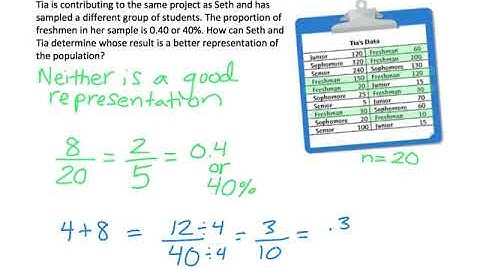 Tia is contributing to the same project as Seth and has
sampled a different group of students. The proportion of
freshmen in her sample is 0.40 or 40%. How can Seth and
Tia determine whose result is a better representation of
the population?
Neither is a good
representation
8/20 = 2/5 = 0.4
or
40%
4+8 = 12÷4/40÷4 = 3/10 = .3
Tia's Data
Junior 120 Freshman 60
Sophomore 320 Freshman 200
Senior 240 Sophomore 130
Freshman 150 Freshman 120
Freshman 20 Junior 15
Sophomore 25 Freshman 30
Senior 5 Junior 70
Freshman 30 Sophomore 60
Sophomore 20 Freshman 10
Senior 100 Junior 15
n=20